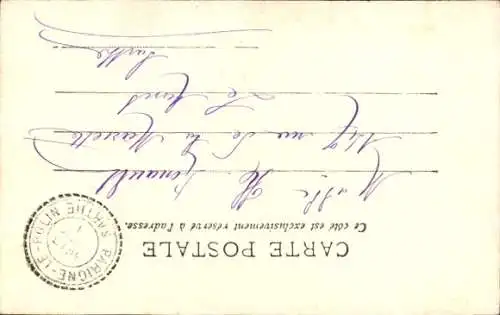 CARTE POSTALE
Ce côté est exclusivement réservé à l'adresse.
M. Renault
rue de la
Le Mans
Sarthe
PARIGNE-LE-POLIN SARTHE